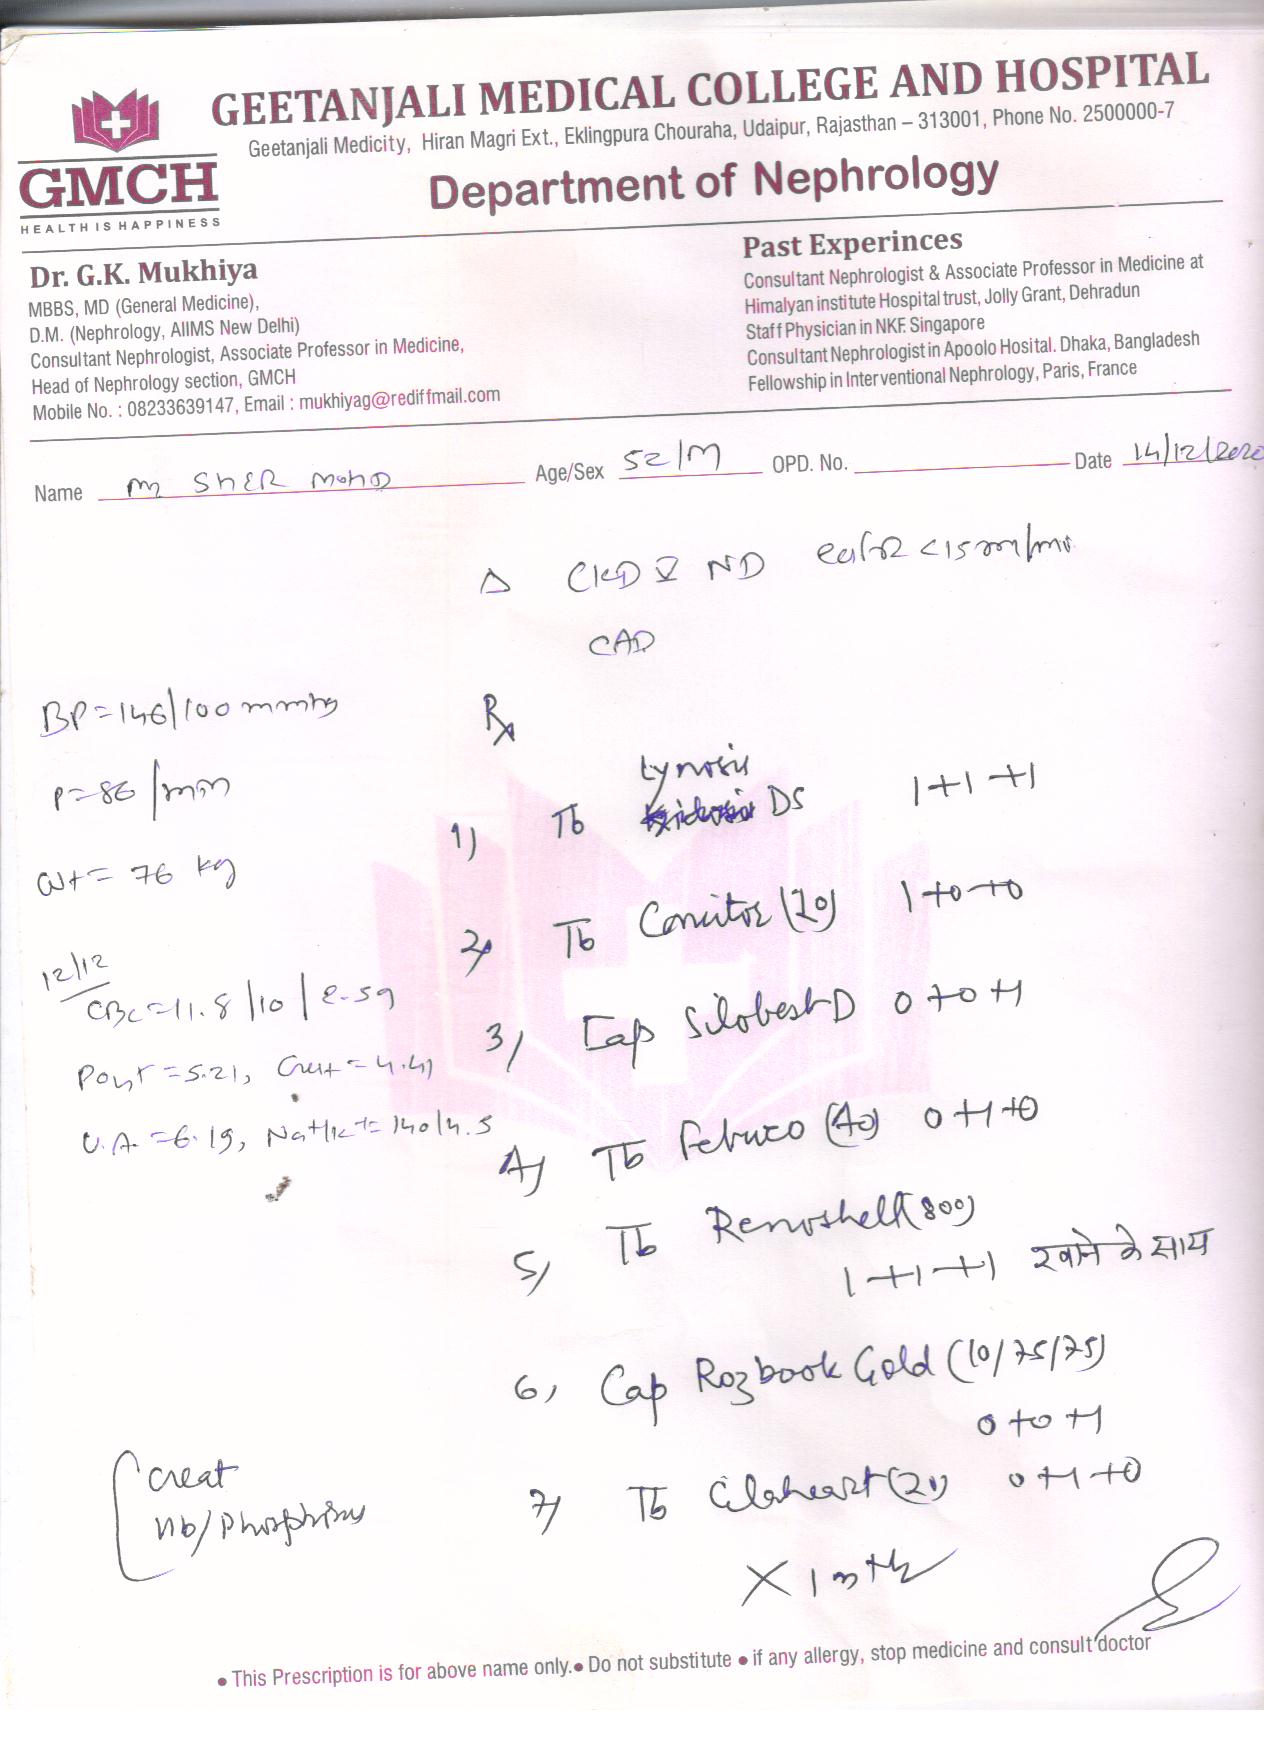 GEETANJALI MEDICAL COLLEGE AND HOSPITAL
Geetanjali Medicity, Hiran Magri Ext., Eklingpura Chouraha, Udaipur, Rajasthan – 313001, Phone No. 2500000-7
GMCH
HEALTH IS HAPPINESS
Department of Nephrology
Dr. G.K. Mukhiya
MBBS, MD (General Medicine),
D.M. (Nephrology, AIIMS New Delhi)
Consultant Nephrologist, Associate Professor in Medicine,
Head of Nephrology section, GMCH
Mobile No. : 08233639147, Email : mukhiyag@rediffmail.com
Past Experinces
Consultant Nephrologist & Associate Professor in Medicine at
Himalyan institute Hospital trust, Jolly Grant, Dehradun
Staff Physician in NKF. Singapore
Consultant Nephrologist in Apoolo Hosital. Dhaka, Bangladesh
Fellowship in Interventional Nephrology, Paris, France
Name Mr SHER MOHD Age/Sex 52/M OPD. No. Date 14/12/2020
Δ CKD V ND eGFR <15 ml/min
CAD
BP=146/100 mmHg
P=86/min
Wt= 76 kg
12/12
CBC=11.8/10/2.59
=5.21, Creat=4.41
U.A.=6.19, Na+/K+=140/4.5
Rx
1) Tb DS 1+1+1
2) Tb (20) 1+0+0
3) Cap Silobest D 0+0+1
4) Tb Febuco (40) 0+1+0
5) Tb Renoshell (800)
1+1+1 खाने के साथ
6) Cap Rozbook Gold (10/75/75)
0+0+1
7) Tb Cilaheart (20) 0+1+0
X 1 mth
Creat
Hb/Phosphorus
• This Prescription is for above name only. • Do not substitute • if any allergy, stop medicine and consult doctor